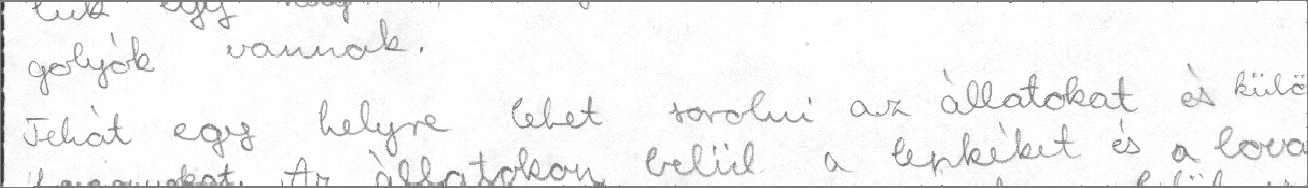 egy
golyók vannak.
Tehát egy helyre lehet sorolni az állatokat és külö
Az állatokon belül a lepkéket és a lova